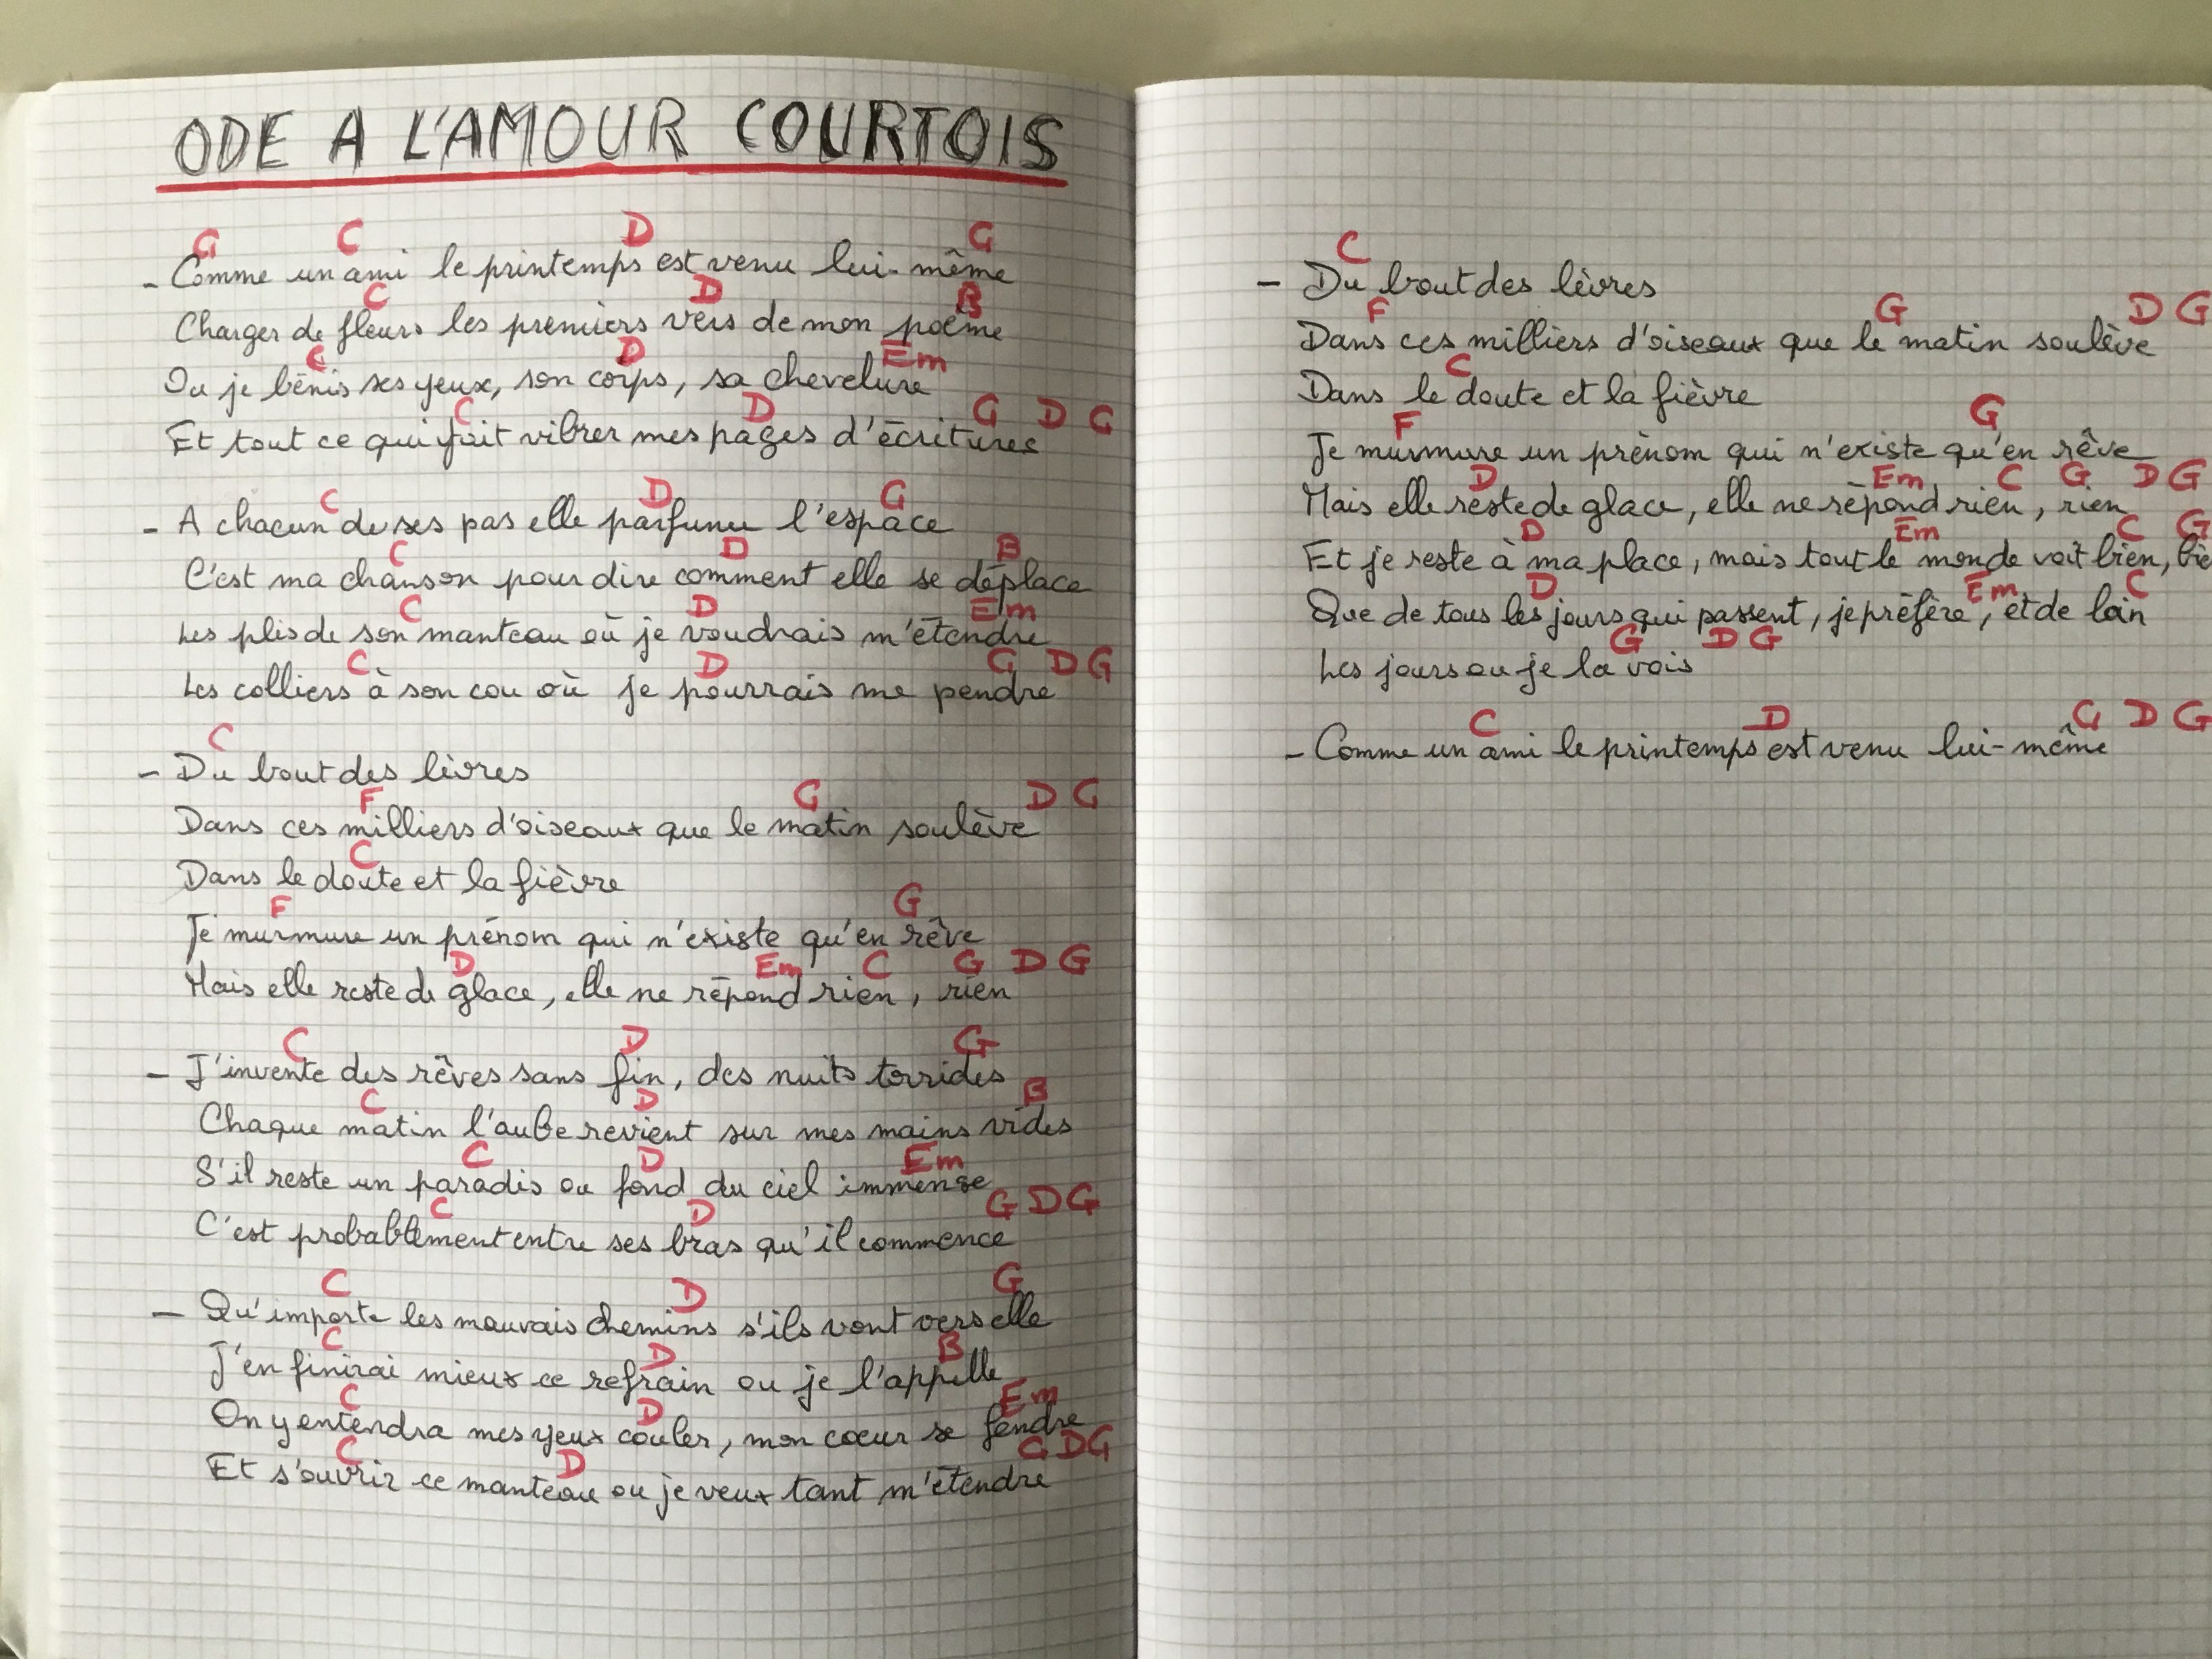 ODE A L'AMOUR COURTOIS
G C D G
- Comme un ami le printemps est venu lui-même
C D B
Charger de fleurs les premiers vers de mon poème
C D Em
Ou je bénis ses yeux, son corps, sa chevelure
C D G D G
Et tout ce qui fait vibrer mes pages d'écritures
C D G
- A chacun de ses pas elle parfume l'espace
C D B
C'est ma chanson pour dire comment elle se déplace
C D Em
Les plis de son manteau où je voudrais m'étendre
C D G D G
Les colliers à son cou où je pourrais me pendre
C
- Du bout des lèvres
F G D G
Dans ces milliers d'oiseaux que le matin soulève
C
Dans le doute et la fièvre
F G
Je murmure un prénom qui n'existe qu'en rêve
D Em C G D G
Mais elle reste de glace, elle ne répond rien, rien
C D G
- J'invente des rêves sans fin, des nuits torrides
C D B
Chaque matin l'aube revient sur mes mains vides
C D Em
S'il reste un paradis au fond du ciel immense
C D G D G
C'est probablement entre ses bras qu'il commence
C D G
- Qu'importe les mauvais chemins s'ils vont vers elle
C D B
J'en finirai mieux ce refrain ou je l'appelle
C D Em
On y entendra mes yeux couler, mon cœur se fendre
C D G D G
Et s'ouvrir ce manteau ou je veux tant m'étendre
C
- Du bout des lèvres
F G D G
Dans ces milliers d'oiseaux que le matin soulève
C
Dans le doute et la fièvre
F G
Je murmure un prénom qui n'existe qu'en rêve
D Em C G D G
Mais elle reste de glace, elle ne répond rien, rien
D Em C G
Et je reste à ma place, mais tout le monde voit bien, bie
D Em C
Que de tous les jours qui passent, je préfère, et de loin
G D G
Les jours ou je la vois
C D G D G
- Comme un ami le printemps est venu lui-même